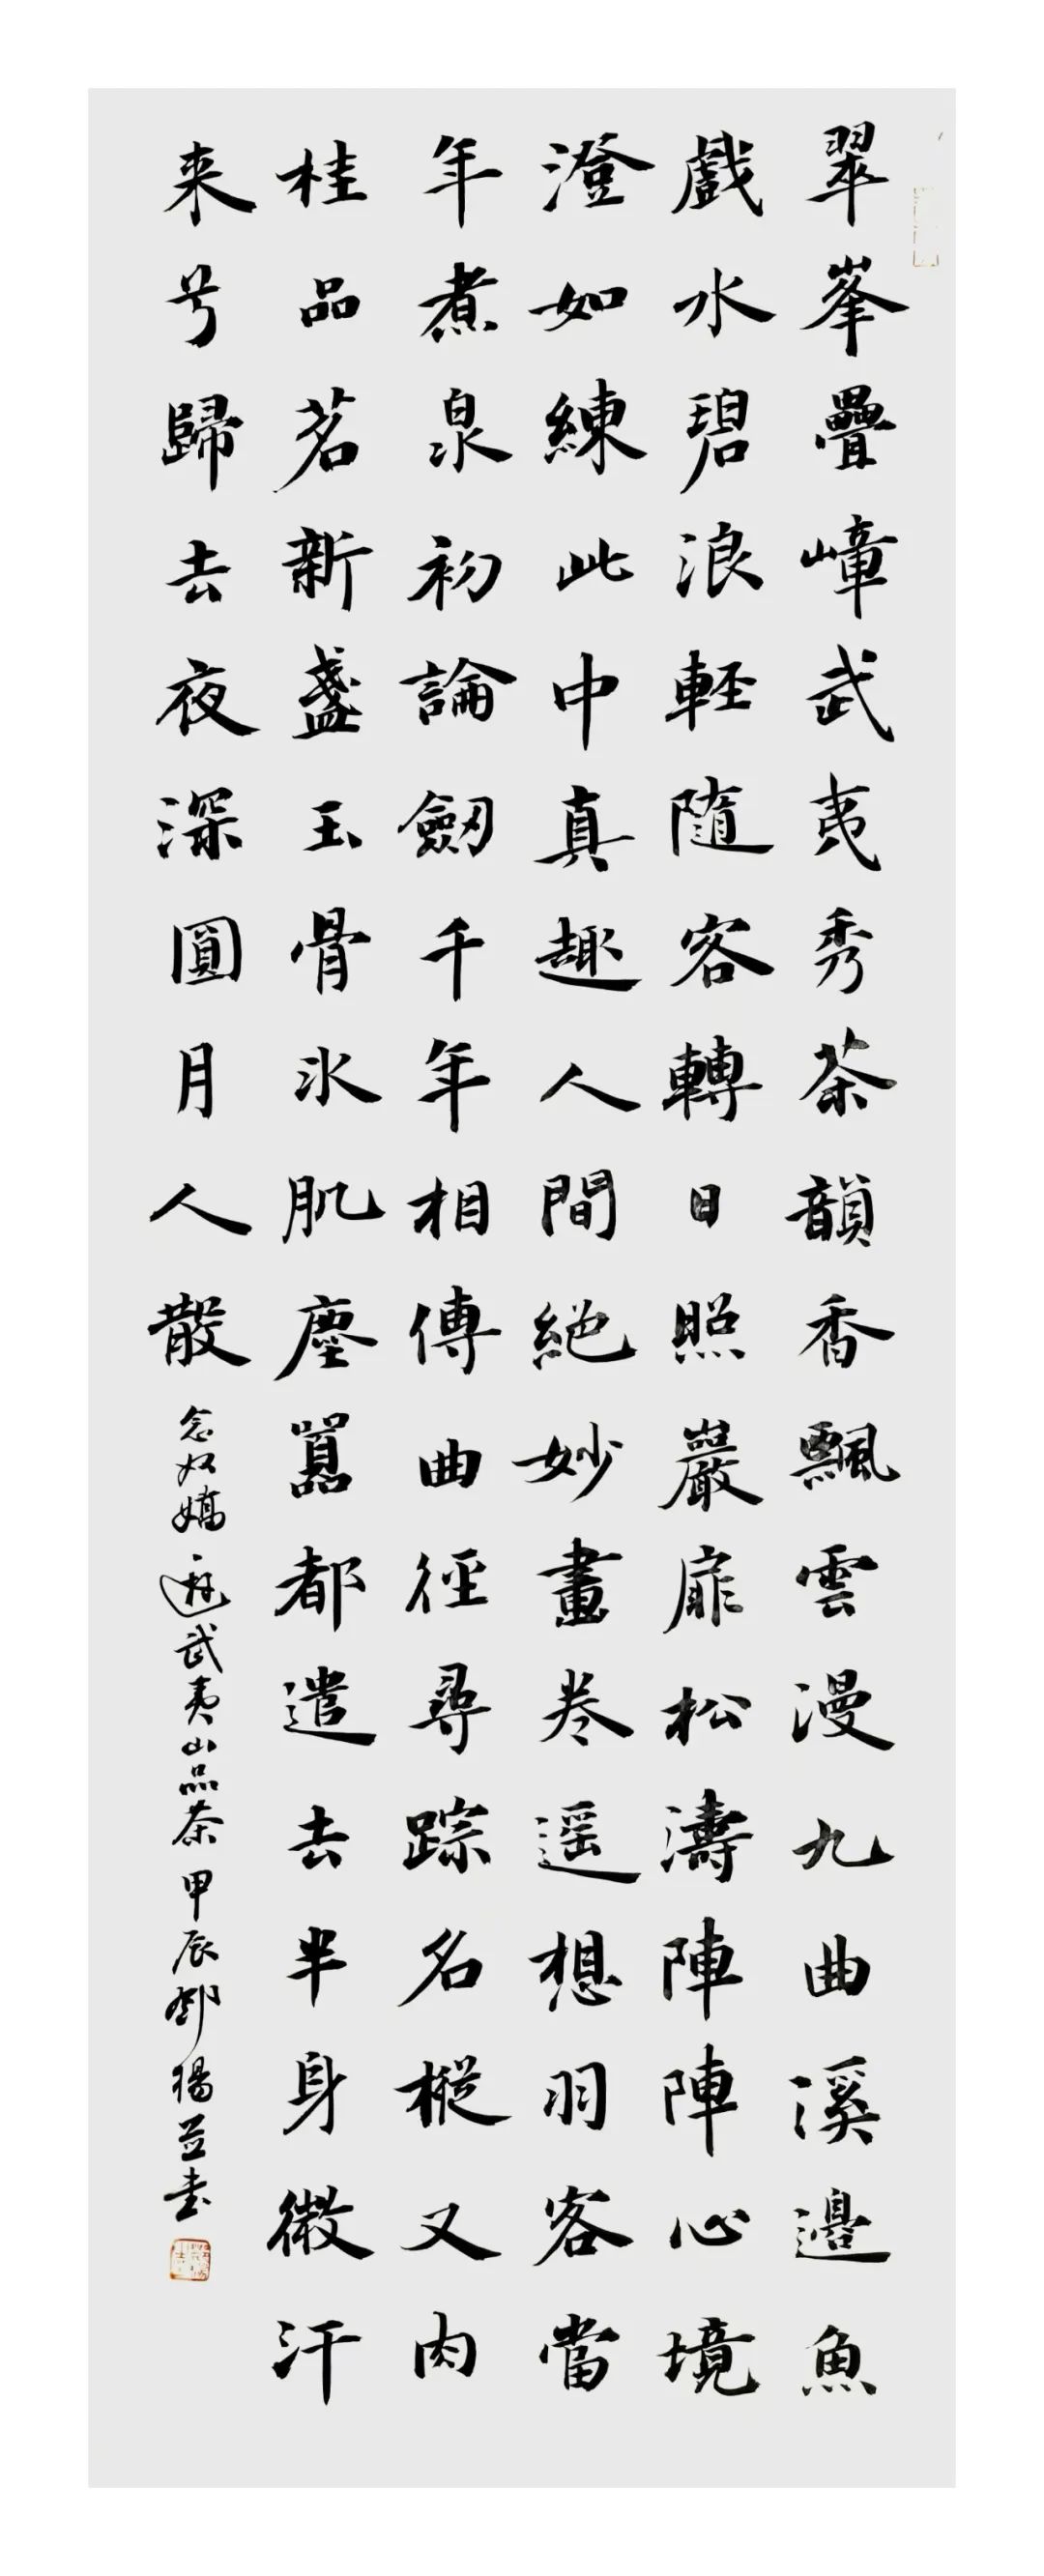 翠峯疊嶂武夷秀茶韻香飄雲漫九曲溪邊魚
戲水碧浪輕隨客轉日照巖扉松濤陣陣心境
澄如練此中真趣人間絕妙畫卷遥想羽客當
年煮泉初論劒千年相傳曲徑尋踪名樅又肉
桂品茗新盞玉骨冰肌塵囂都遣去半身微汗
来兮歸去夜深圓月人散
念奴嬌 遊武夷山品茶 甲辰 鄧楊並書